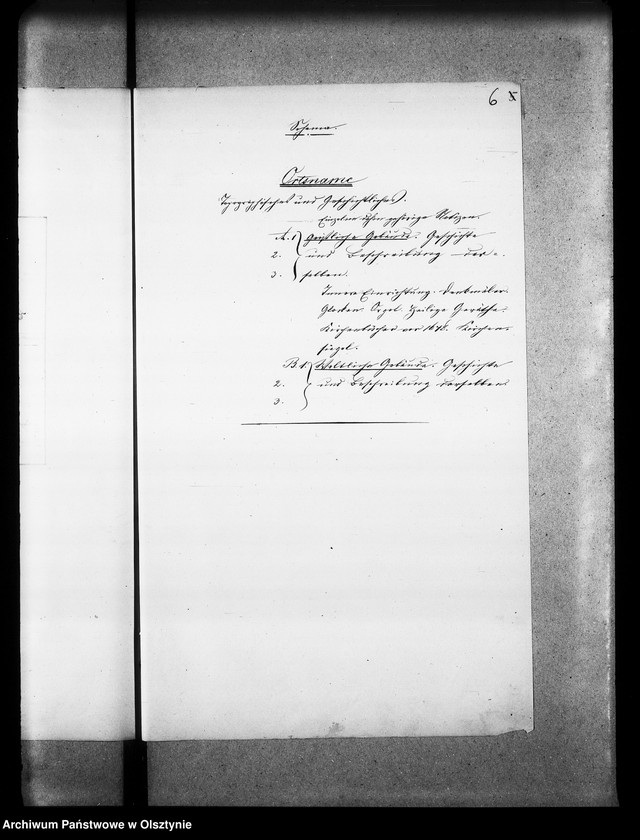 6
Schema.
Ortsname
Topographisches und Geschichtliches.
Einzelne daher gehörige Notizen.
A. 1. Geistliche Gebäude. Geschichte
2. und Beschreibung der-
3. selben.
Innere Einrichtung. Denkmäler.
Glocken. Orgel. Heilige Geräthe.
Kirchenbücher vor Kirchen-
siegel.
B. 1. Weltliche Gebäude. Geschichte
2. und Beschreibung derselben
3.
Archiwum Państwowe w Olsztynie